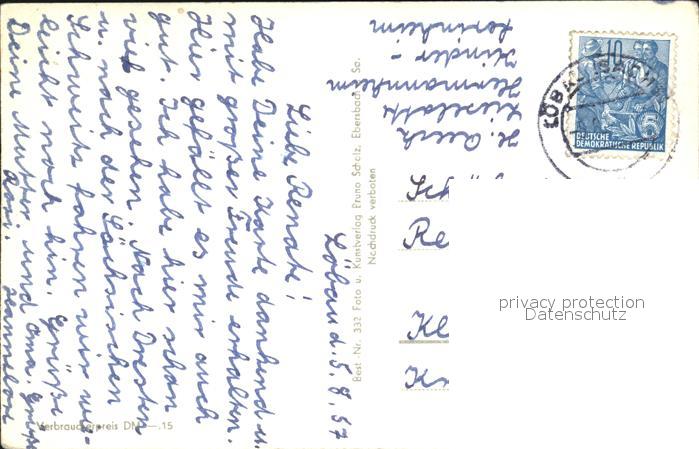 Löbau d. 5. 8. 57
Liebe Renate!
Habe Deine Karte dankend u.
mit großer Freude erhalten.
Hier gefällt es mir auch
gut. Ich habe hier schon
viel gesehen. Nach Dresten
u. nach der Sächsischen
Schweitz fahren wir vie-
leicht noch hin. Grüße
Deine Mutter und Oma.
Hannelore
H.
Lieselotte
Hermannheim
Kinder-
Ferienheim
Sch
Re
Kl
Kr
LÖBAU (SACHS)
10
5
DEUTSCHE
DEMOKRATISCHE REPUBLIK
Best.-Nr. 332 Foto u. Kunstverlag Bruno Scholz, Ebersbach Sa.
Nachdruck verboten
Verbraucherpreis DM —.15
privacy protection
Datenschutz